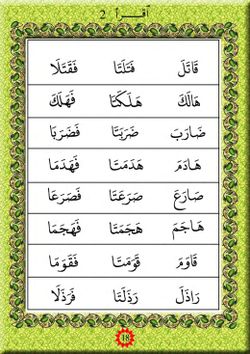 اقرأ 2
قَاتَلَ قَتَلَتَا فَقَتَلَا
هَالَكَ هَلَكَتَا فَهَلَكَ
ضَارَبَ ضَرَبَتَا فَضَرَبَا
هَادَمَ هَدَمَتَا فَهَدَمَا
صَارَعَ صَرَعَتَا فَصَرَعَا
هَاجَمَ هَجَمَتَا فَهَجَمَا
قَاوَمَ قَوَمَتَا فَقَوَمَا
رَاذَلَ رَذَلَتَا فَرَذَلَا
18